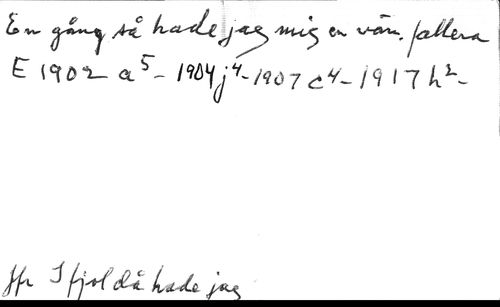 En gång så hade jag mig en vän. fallera
E 1902 a5 - 1904 j4 - 1907 c4 - 1917 h2 -
Jfr I fjol då hade jag